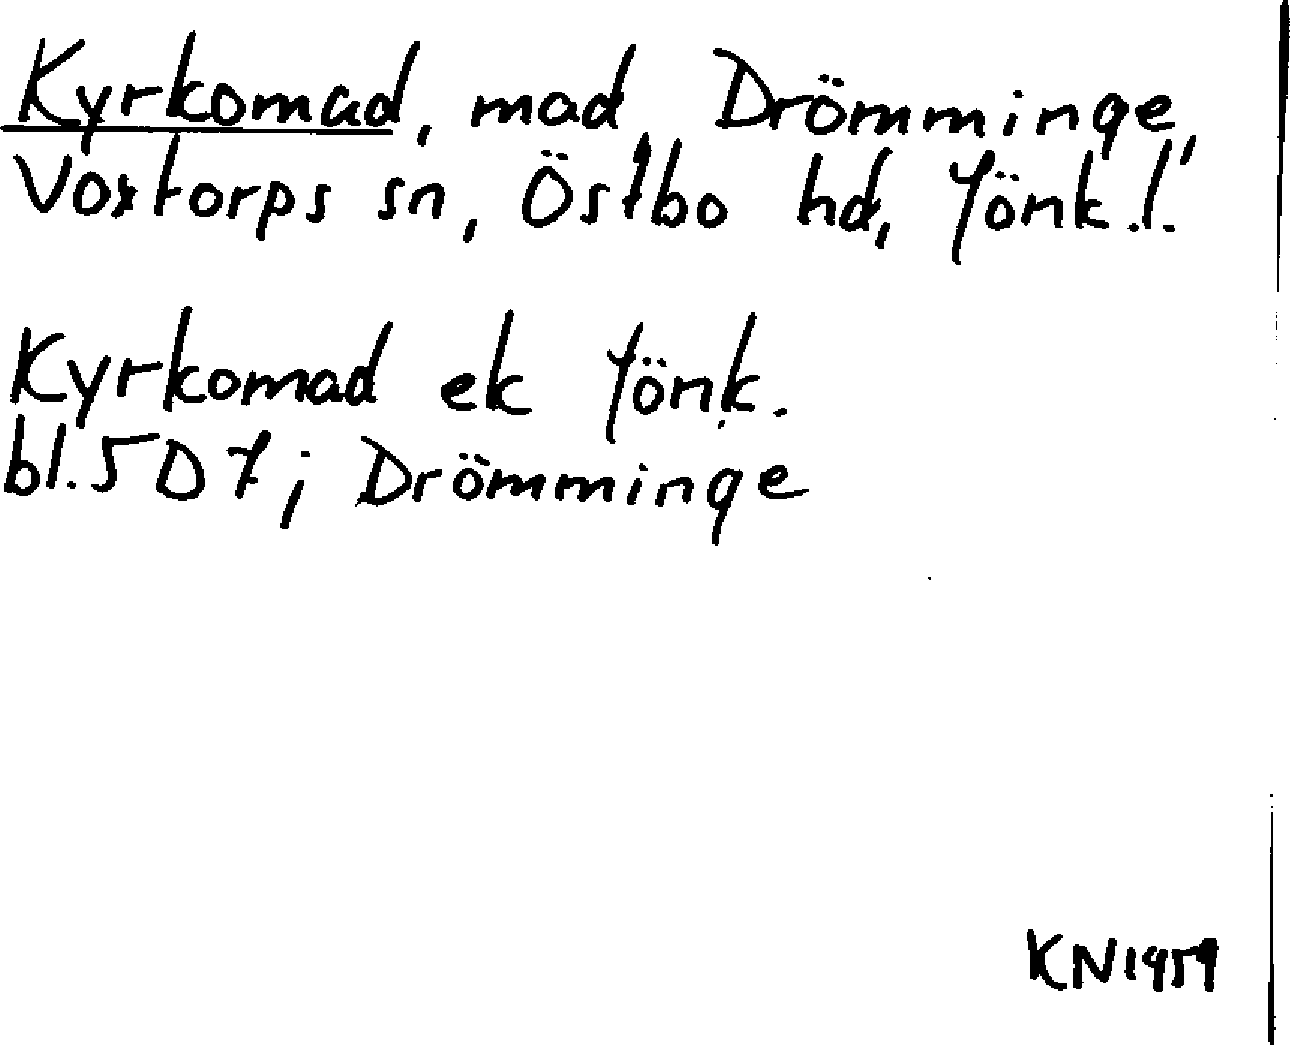 Kyrkomad, mad, Drömminge,
Voxtorps sn, Östbo hd, Jönk.l.
Kyrkomad ek Jönk.
bl. 5D7; Drömminge
KN1959